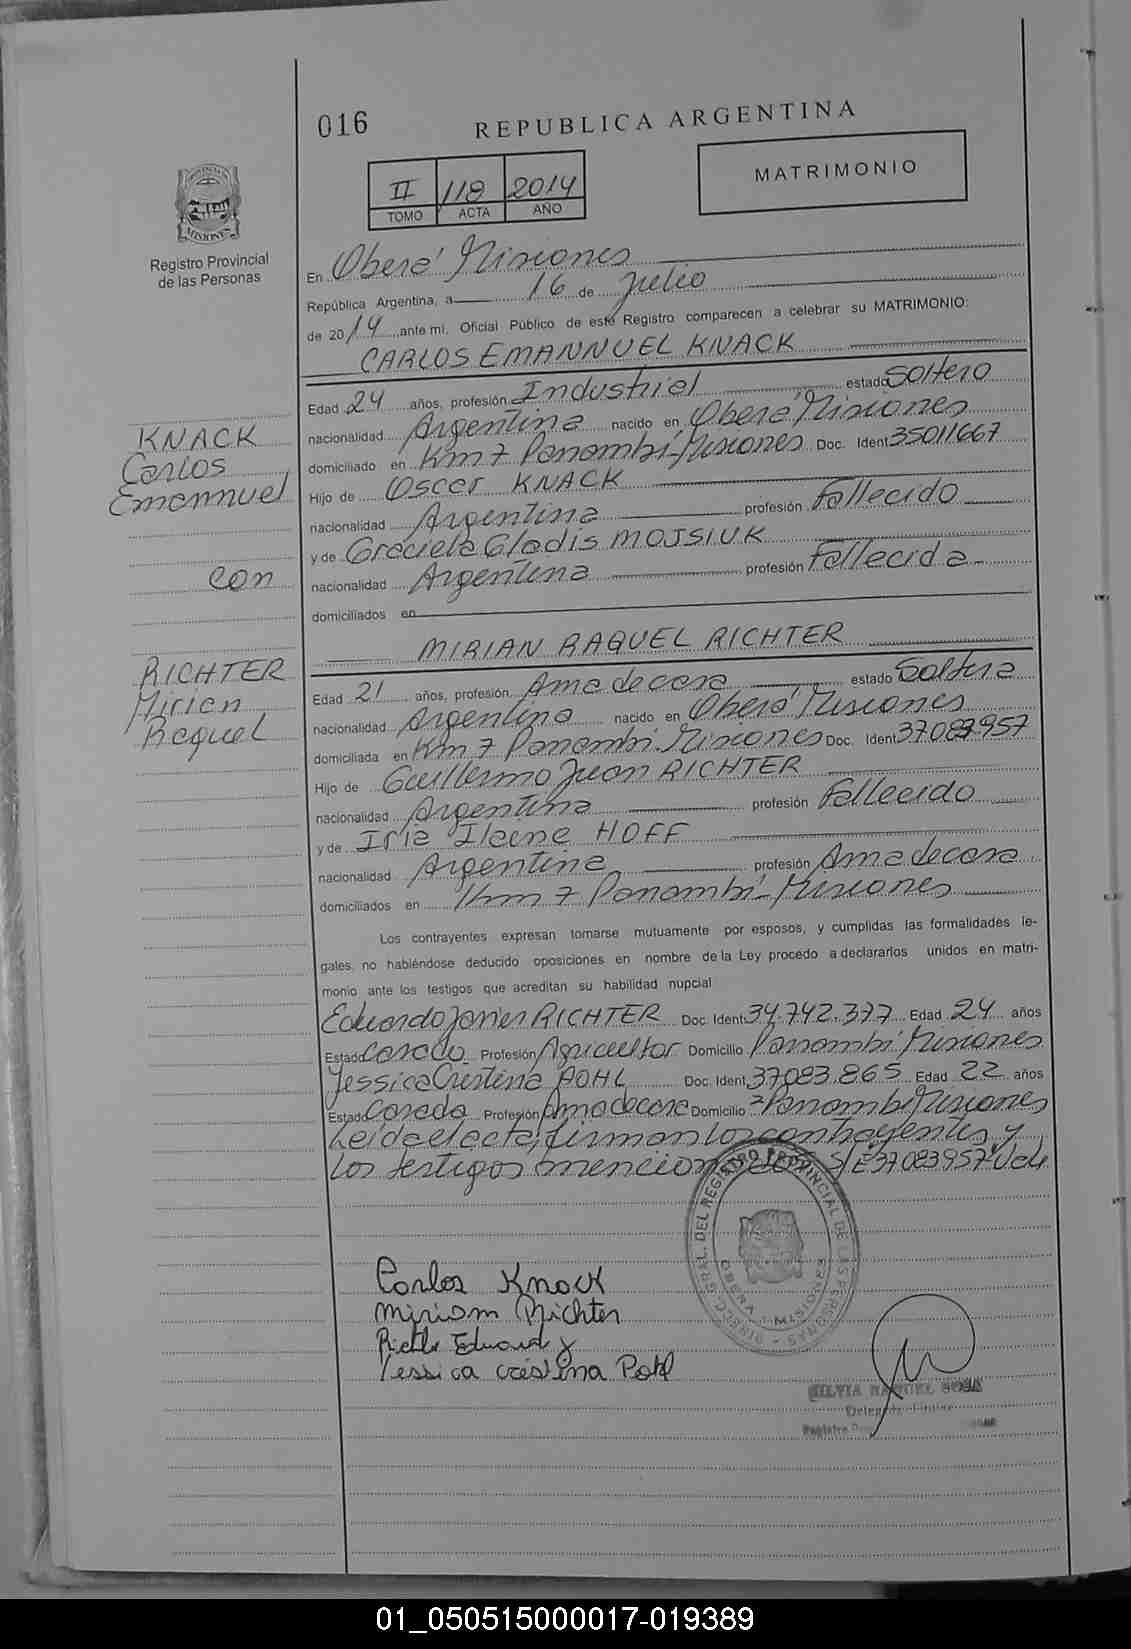 016
REPUBLICA ARGENTINA
MATRIMONIO
II 118 2014
TOMO ACTA AÑO
MISIONES
Registro Provincial
de las Personas
En Oberá Misiones
República Argentina, a 16 de Julio
de 2014 ante mí, Oficial Público de este Registro comparecen a celebrar su MATRIMONIO:
CARLOS EMANNUEL KNACK
Edad 24 años, profesión Industrial estado Soltero
nacionalidad Argentina nacido en Oberá Misiones
domiciliado en Km 7 Panambí-Misiones Doc. Ident 35011667
Hijo de Oscar KNACK
nacionalidad Argentina profesión Fallecido
y de Graciela Gladis MOJSIUK
nacionalidad Argentina profesión Fallecida
domiciliados en
KNACK
Carlos
Emannuel
con
RICHTER
Mirian
Raquel
MIRIAN RAQUEL RICHTER
Edad 21 años, profesión Ama de casa estado Soltera
nacionalidad Argentina nacido en Oberá Misiones
domiciliada en Km 7 Panambí-Misiones Doc. Ident 37083957
Hijo de Guillermo Juan RICHTER
nacionalidad Argentina profesión Fallecido
y de Iria Ilaine HOFF
nacionalidad Argentina profesión Ama de casa
domiciliados en Km 7 Panambí-Misiones
Los contrayentes expresan tomarse mutuamente por esposos, y cumplidas las formalidades le-
gales, no habiéndose deducido oposiciones en nombre de la Ley procedo a declararlos unidos en matri-
monio ante los testigos que acreditan su habilidad nupcial
Eduardo Javier RICHTER Doc. Ident 34.742.377 Edad 24 años
Estado Casado Profesión Agricultor Domicilio Panambí Misiones
Yessica Cristina POHL Doc. Ident 37.083.865 Edad 22 años
Estado Casada Profesión Ama de casa Domicilio Panambí Misiones
Leída el acta, firman los contrayentes y
los testigos mencionados S/E 37083957 Vale
DIREC. GRAL. DEL REGISTRO PROVINCIAL DE LAS PERSONAS
OBERA - MISIONES
Carlos Knack
Miriam Richter
Richter Eduardo J
Yessica Cristina Pohl
SILVIA SOSA
Registro
01_050515000017-019389